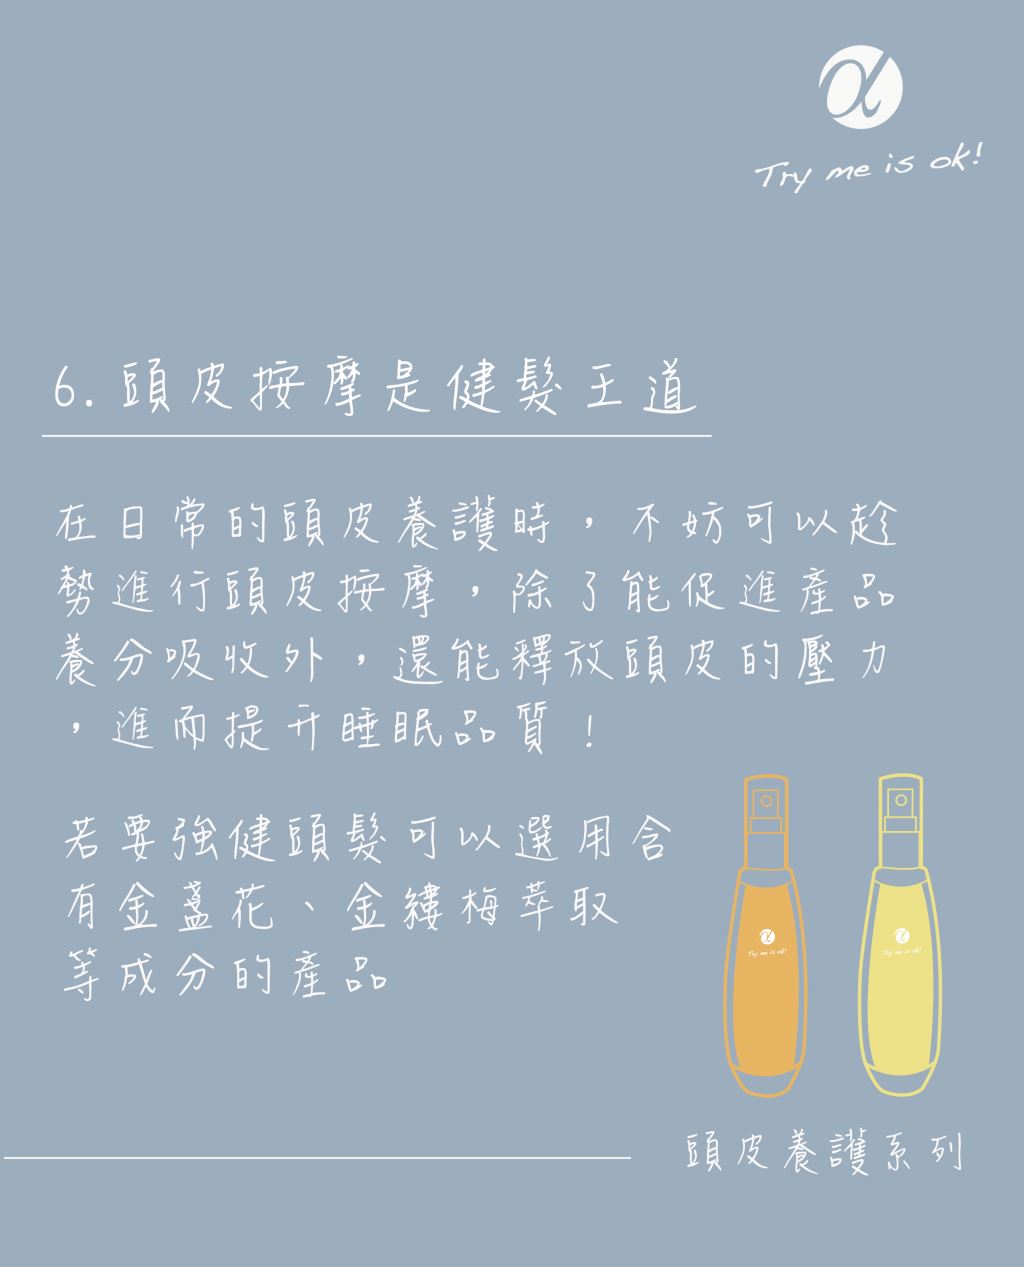 α
Try me is ok!
6.頭皮按摩是健髮王道
在日常的頭皮養護時，不妨可以趁
勢進行頭皮按摩，除了能促進產品
養分吸收外，還能釋放頭皮的壓力
，進而提升睡眠品質！
若要強健頭髮可以選用含
有金盞花、金縷梅萃取
等成分的產品
α
Try me is ok!
α
Try me is ok!
頭皮養護系列